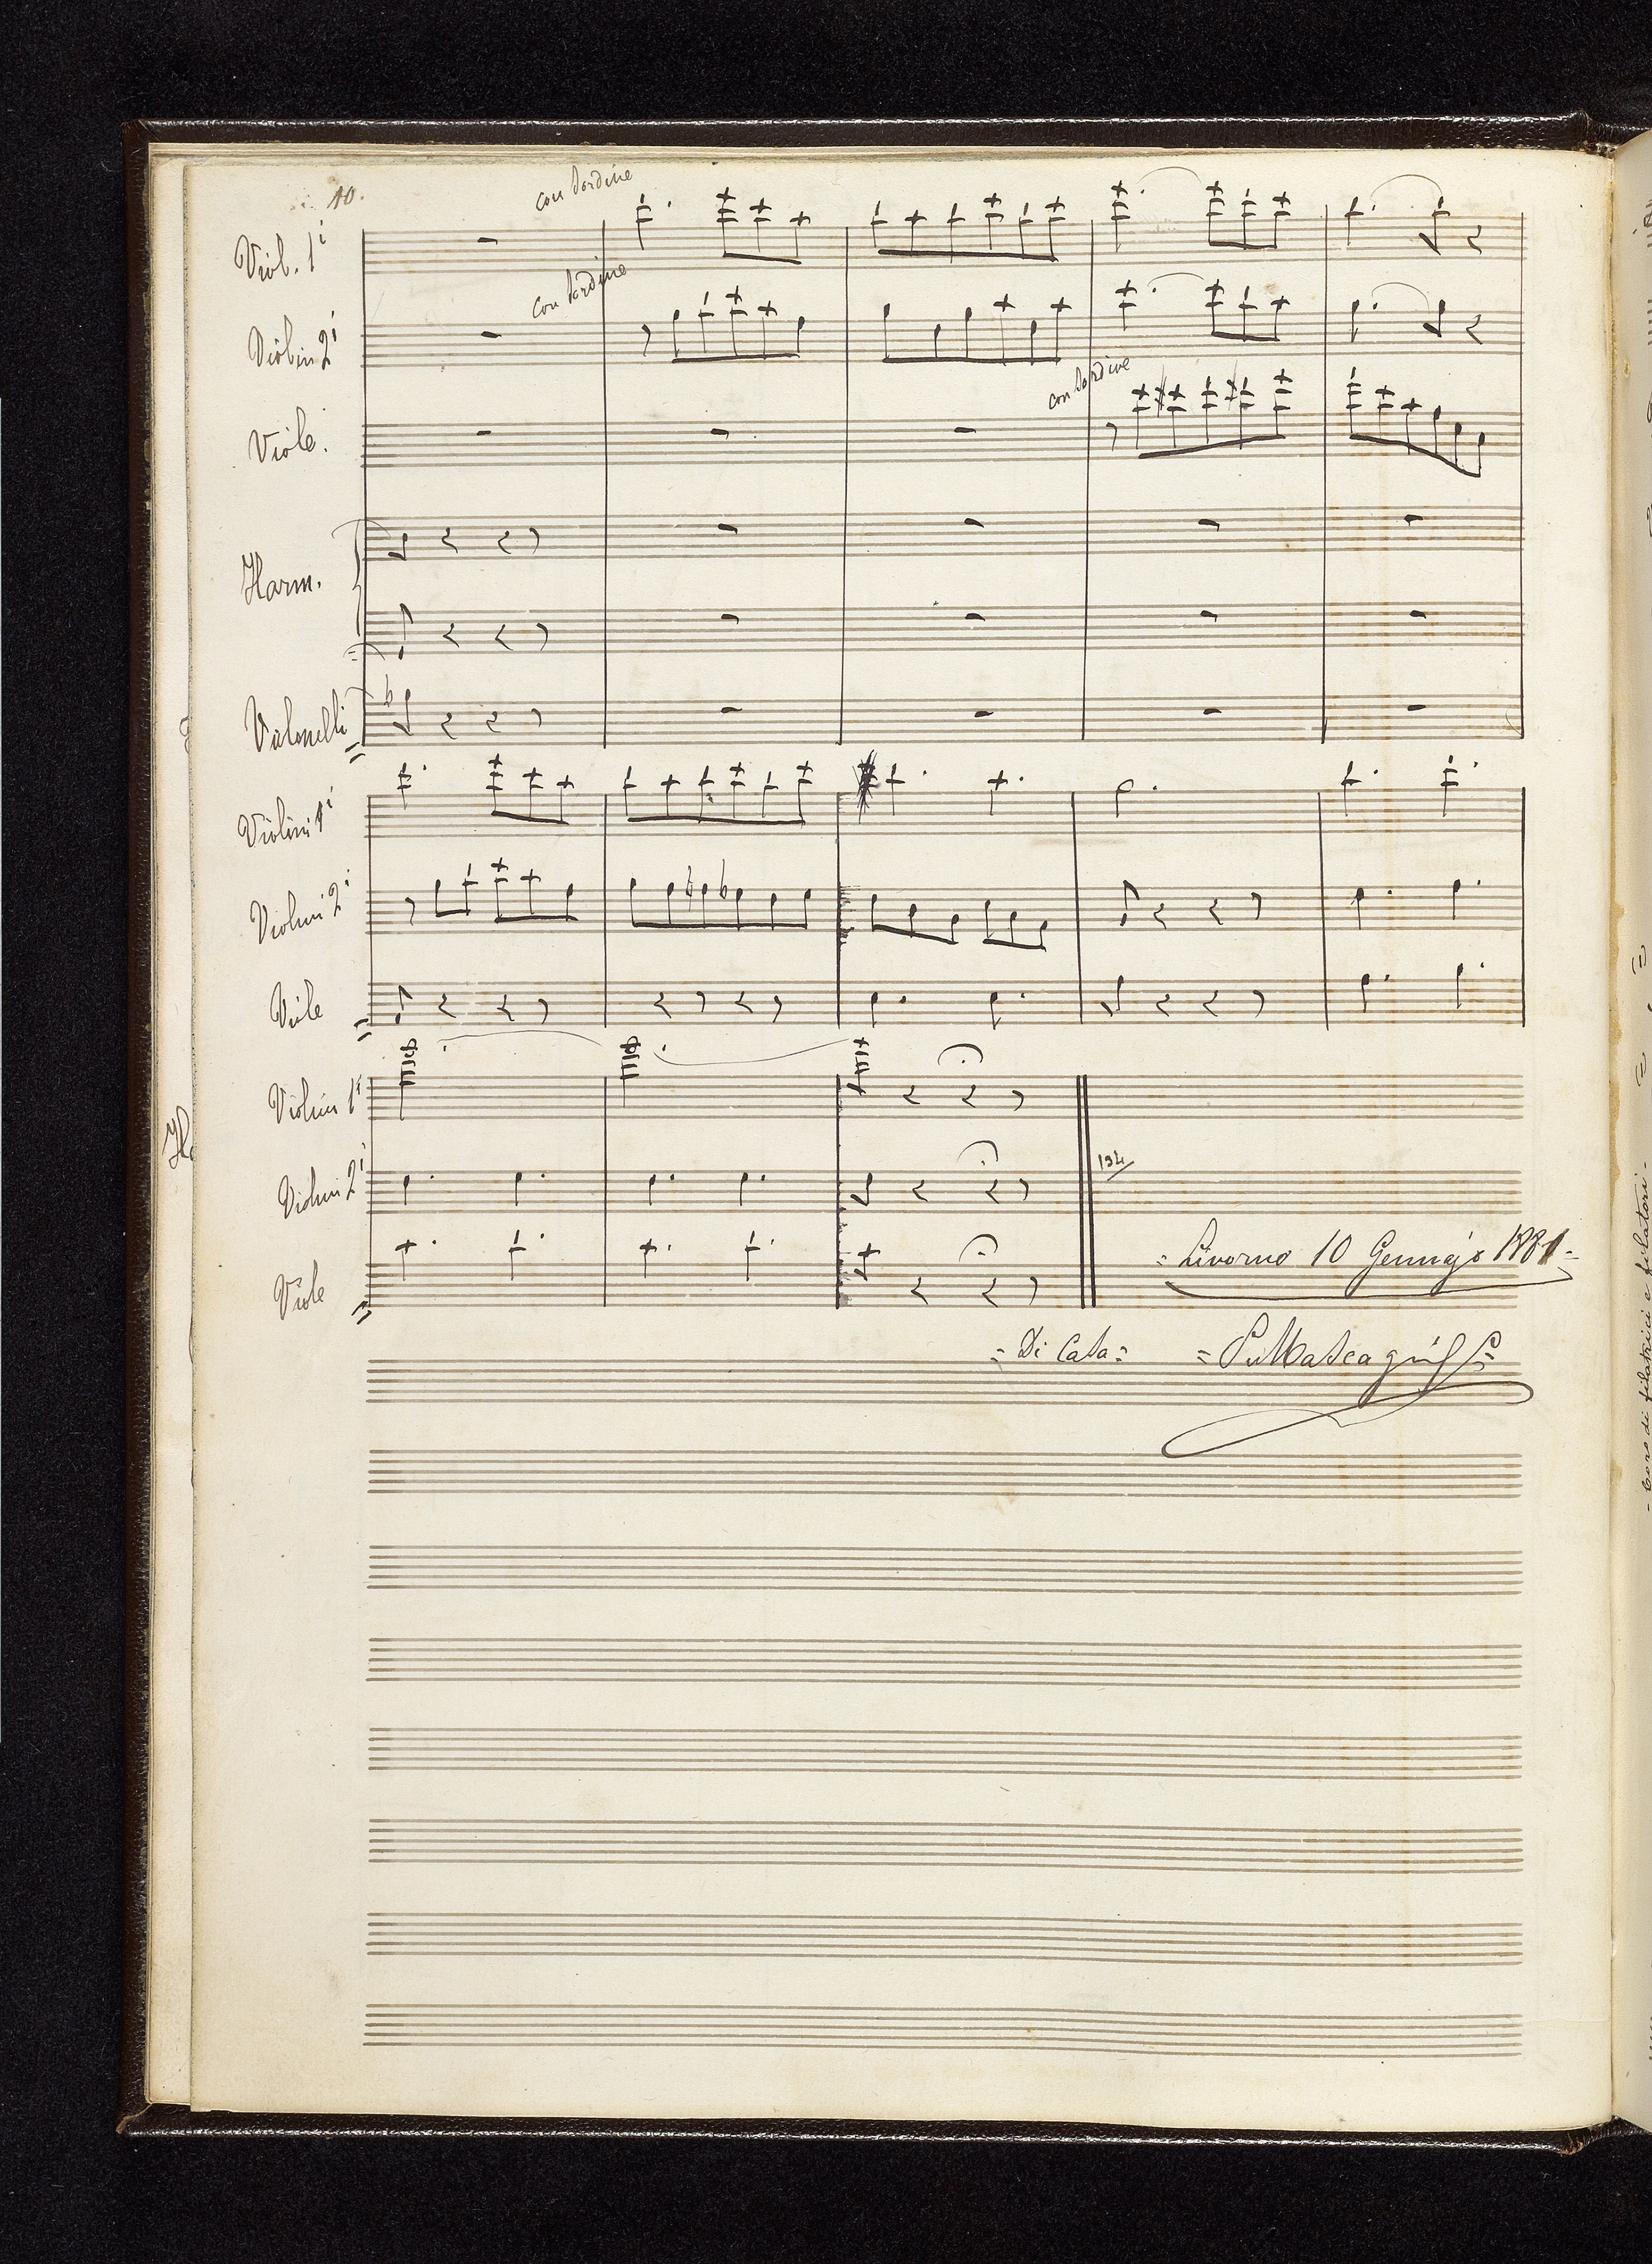 10.
con sordine
Viol. 1i
con sordine
Violin 2i
con sordine
Viole.
Harm.
Violoncelli
Violini 1i
Violini 2i
Viole
Violini 1i
H.
Violini 2i
134
Viole
= Livorno 10 Gennajo 1881 =
= Di Casa = = P. Mascagni =
- Coro di filatrici e filatori -